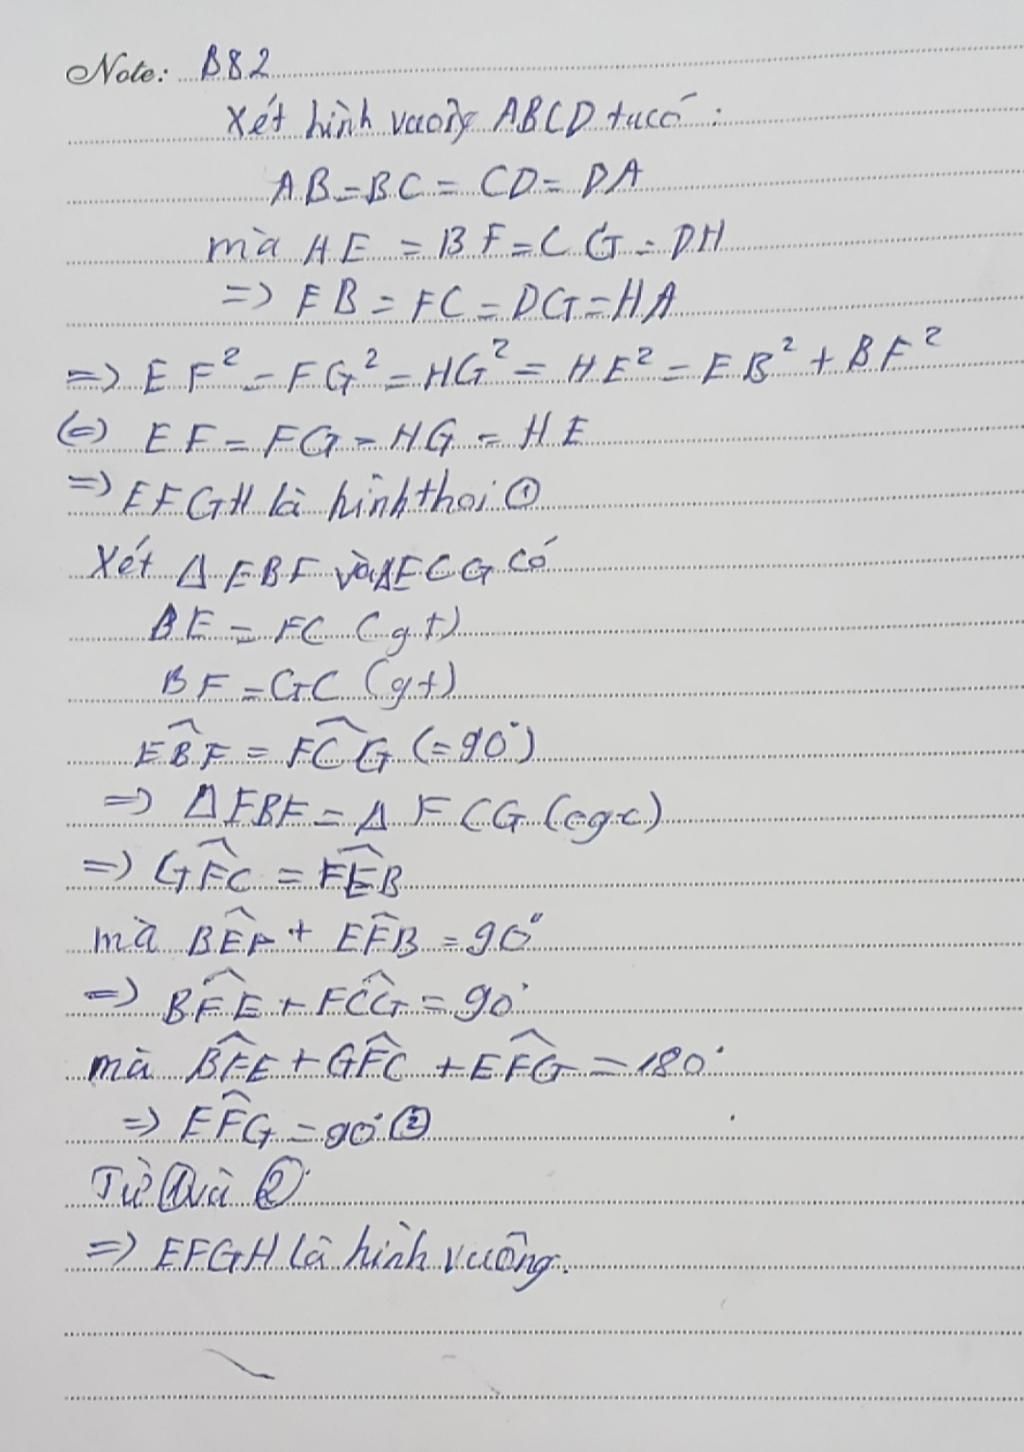 Note: B82
Xét hình vuông ABCD ta có:
AB = BC = CD = DA
mà HE = BF = CG = DH
=> EB = FC = DG = HA
=> EF² = FG² = HG² = HE² = EB² + BF²
(=) EF = FG = HG = HE
=> EFGH là hình thoi ①
Xét Δ EBF và Δ FCG có
BE = FC (gt)
BF = GC (gt)
EB̂F = FĈG (= 90°)
=> Δ EBF = Δ FCG (cgc)
=> GF̂C = FÊB
mà BÊF + EF̂B = 90°
=> BF̂E + FĈG = 90°
mà BF̂E + GF̂C + EF̂G = 180°
=> EF̂G = 90° ②
Từ ① và ②
=> EFGH là hình vuông.